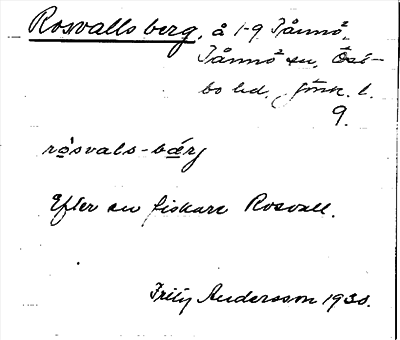 Rosvalls berg, å 1-9 Tånnö,
Tånnö sn, Öst-
bo hd, Jönk. l.
9.
rosvals-bærj
Efter en fiskare Rosvall.
Fritz Andersson 1930.